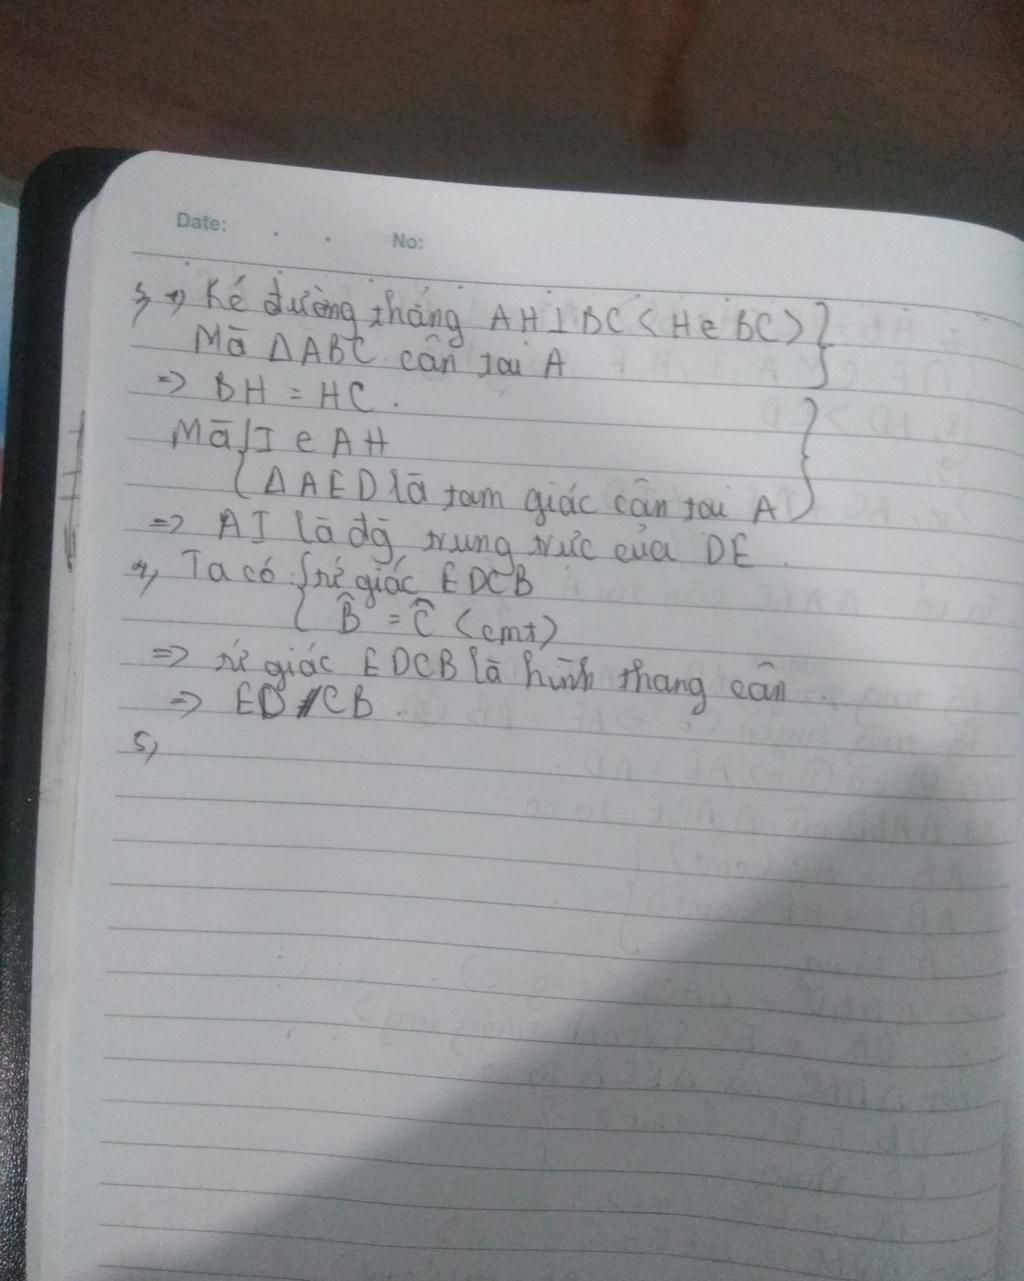 Date: . . No:
3, *) Kẻ đường thẳng AH⊥BC <H e BC>}
Mà ΔABC cân tại A
=> BH = HC.
Mà { I e AH
{ ΔAED là tam giác cân tại A }
=> AI là đg trung trực của DE
4, Ta có { tứ giác EDCB
{ B̂ = Ĉ <cmt>
=> tứ giác EDCB là hình thang cân.
=> ED // CB ..
5,